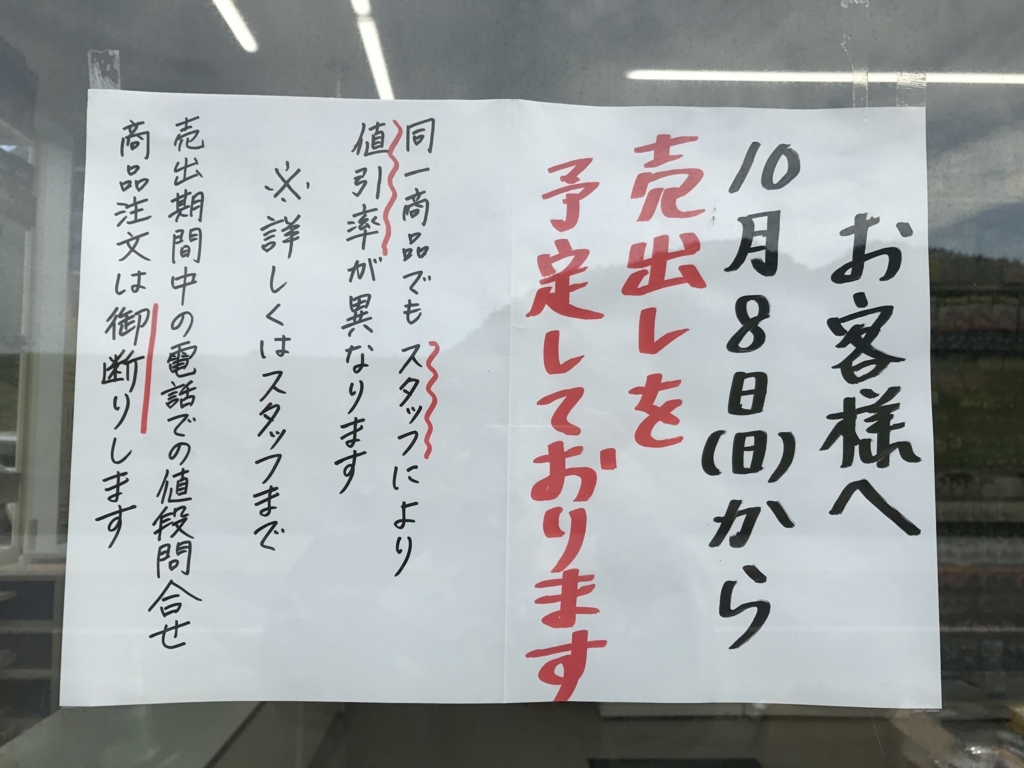 お客様へ
10月8日(日)から
売出しを
予定しております
同一商品でもスタッフにより
値引率が異なります
※詳しくはスタッフまで
売出期間中の電話での値段問合せ
商品注文は御断りします